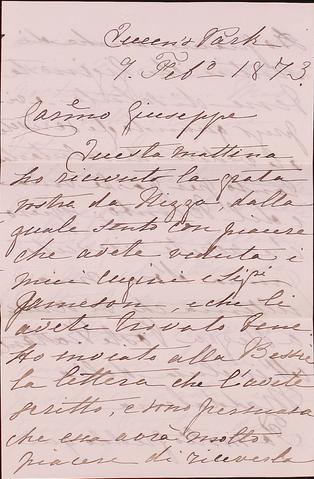 Queen's Park
9. Febº 1873.
Carmo Giuseppe
Questa mattina
ho ricevuto la grata
vostra da Nizza, dalla
quale sento con piacere
che avete veduta i
miei cugini e Sigri
Jameson, e che li
avete trovato bene.
Ho inviato alla Bessie
la lettera che l'avete
scritto, e sono persuasa
che essa avrà molto
piacere di riceverla